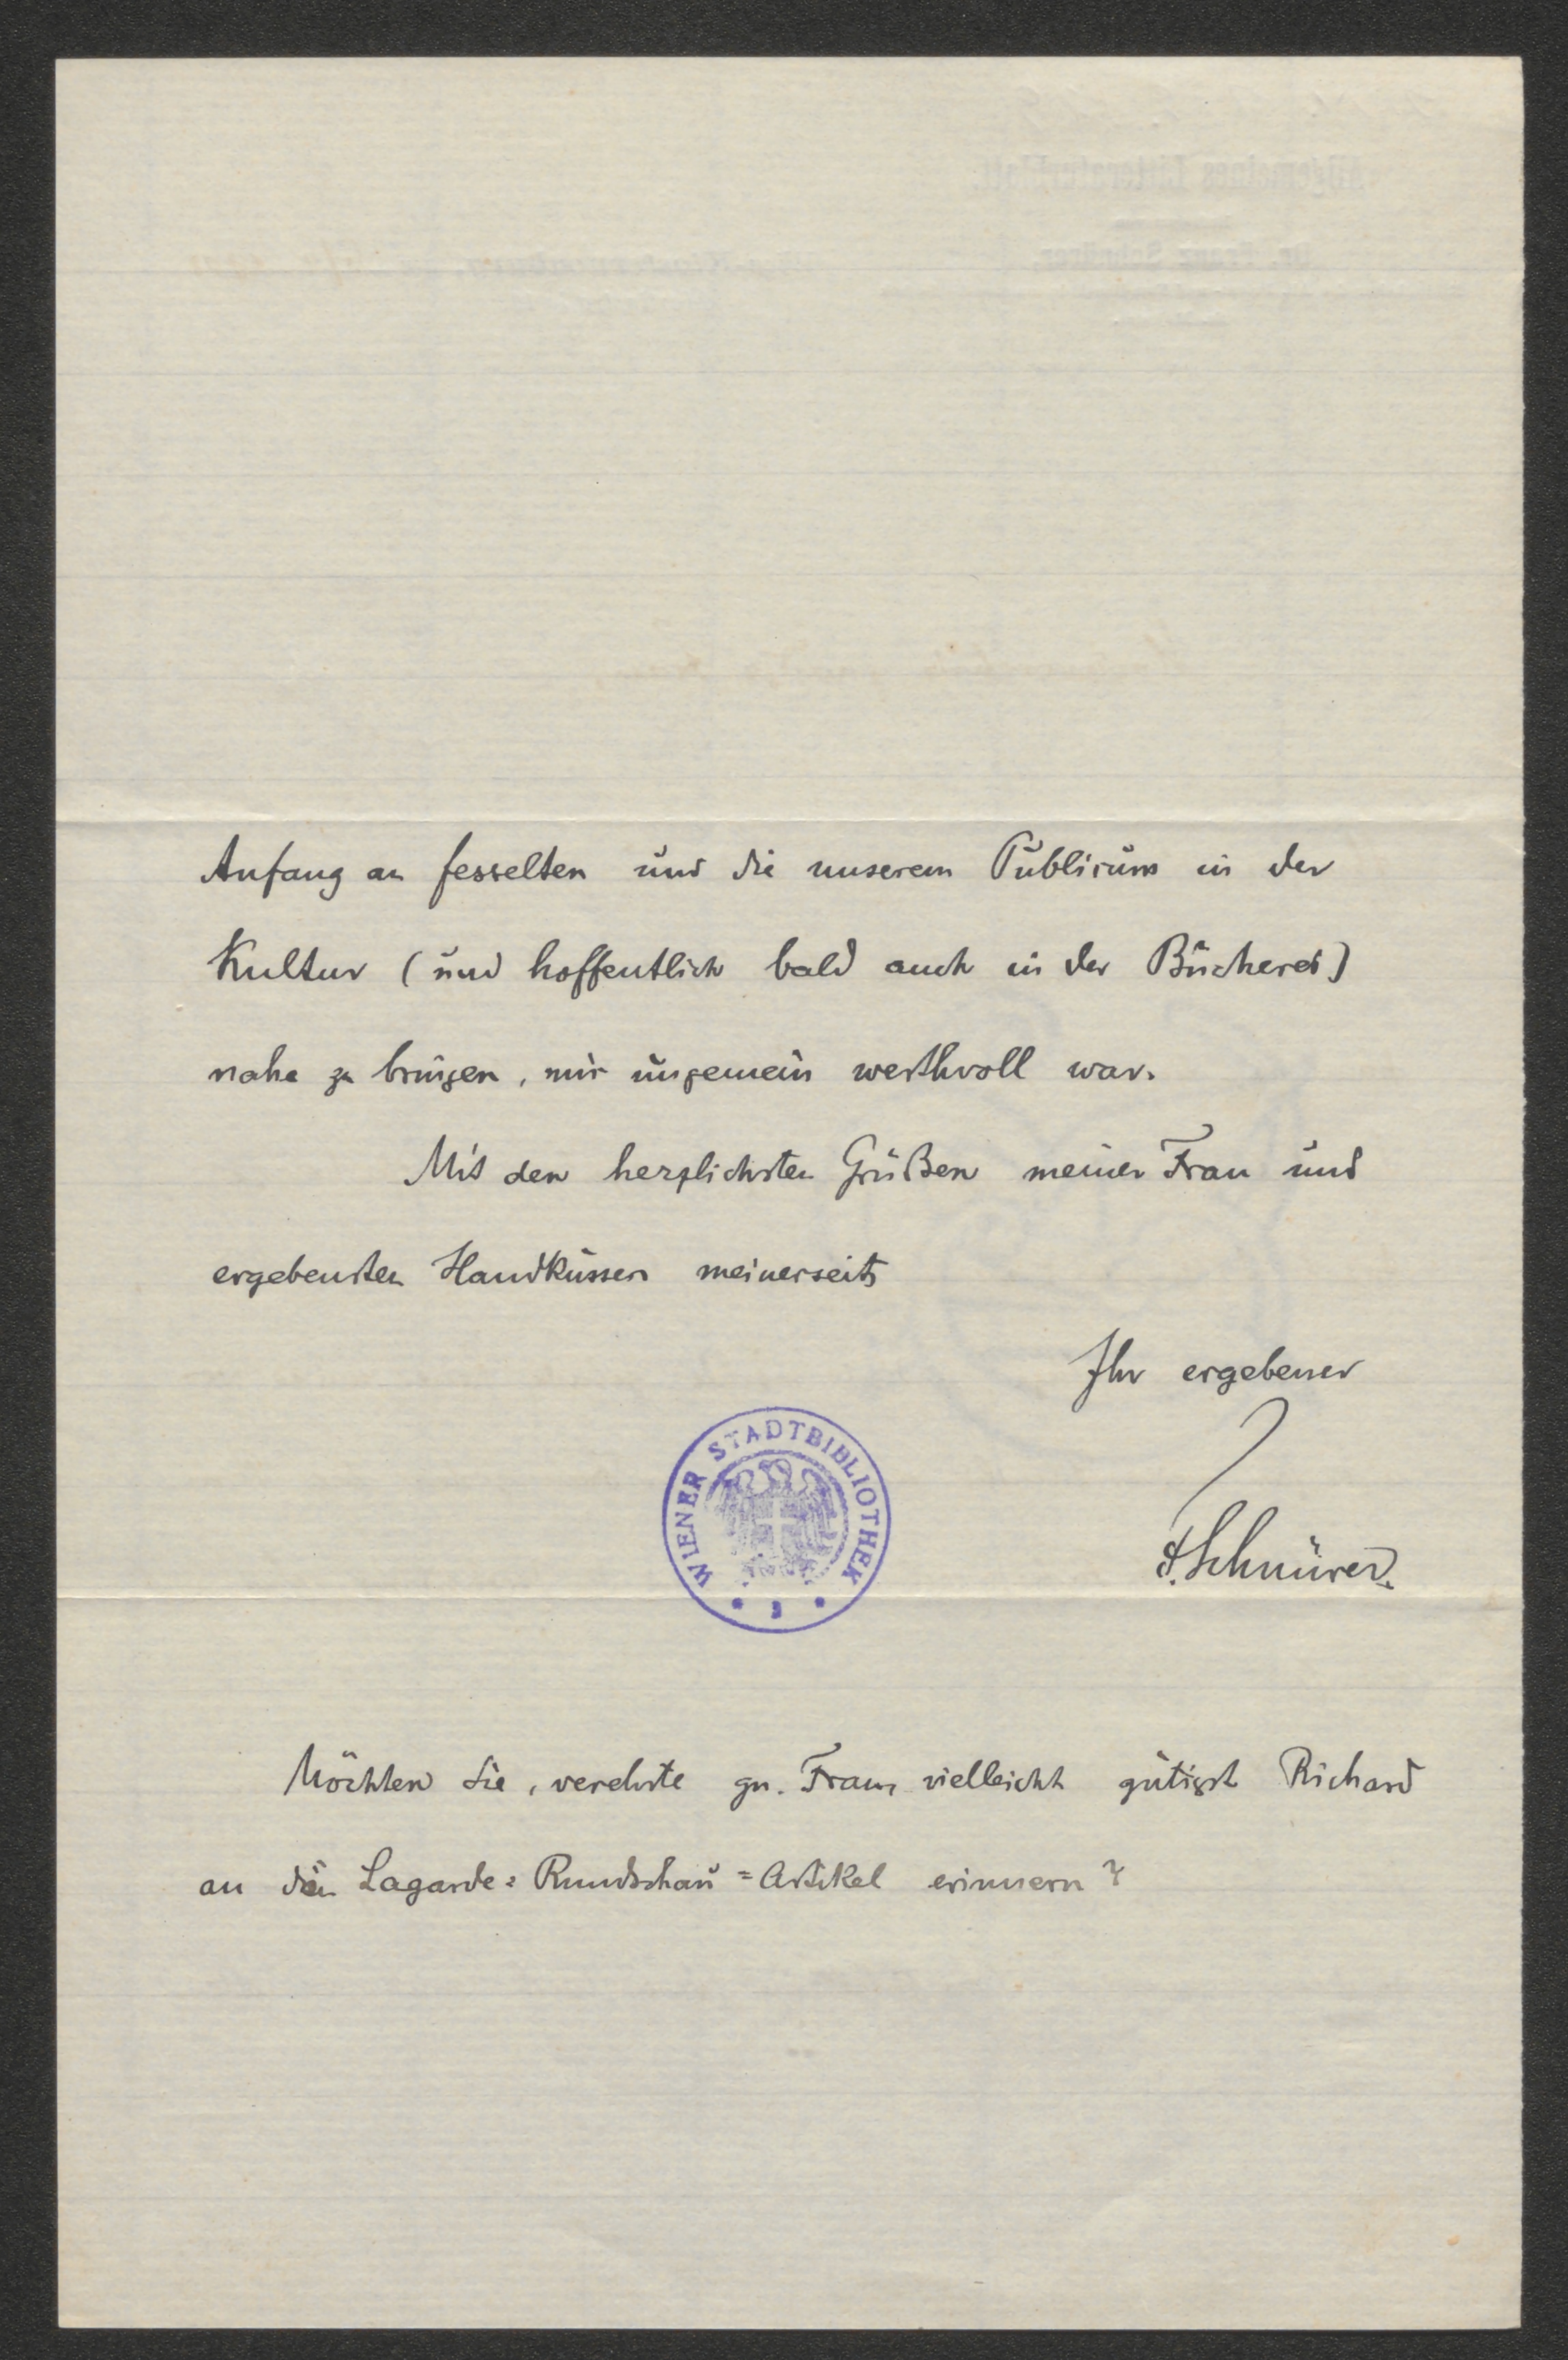 Anfang an fesselten und die unserem Publicum in der
Kultur (und hoffentlich bald auch in der Bücherei)
nahe zu bringen, mir ungemein werthvoll war.
Mit den herzlichsten Grüßen meiner Frau und
ergebensten Handküssen meinerseits
Ihr ergebener
WIENER STADTBIBLIOTHEK
F. Schnürer.
Möchten Sie, verehrte gn. Frau, vielleicht gütigst Richard
an den Lagarde=Rundschau=Artikel erinnern?